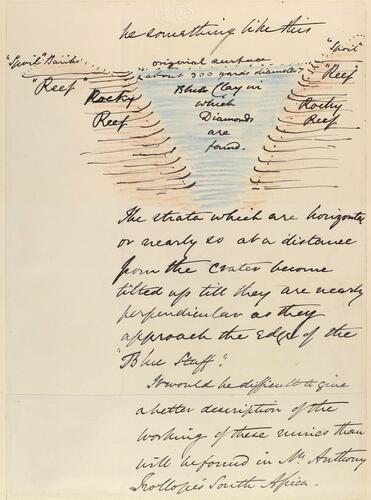 be something like this
"Spoil" Bank
original surface
"Spoil"
"Reef"
about 300 yards diameter
"Reef"
Rocky
Reef
Blue Clay in
which
Diamonds
are
found.
Rocky
Reef
The strata which are horizontal
or nearly so at a distance
from the crater become
tilted up till they are nearly
perpendicular as they
approach the edge of the
"Blue Stuff".
It would be difficult to give
a better description of the
working of these mines than
will be found in Mr Anthony
Trollope's South Africa.